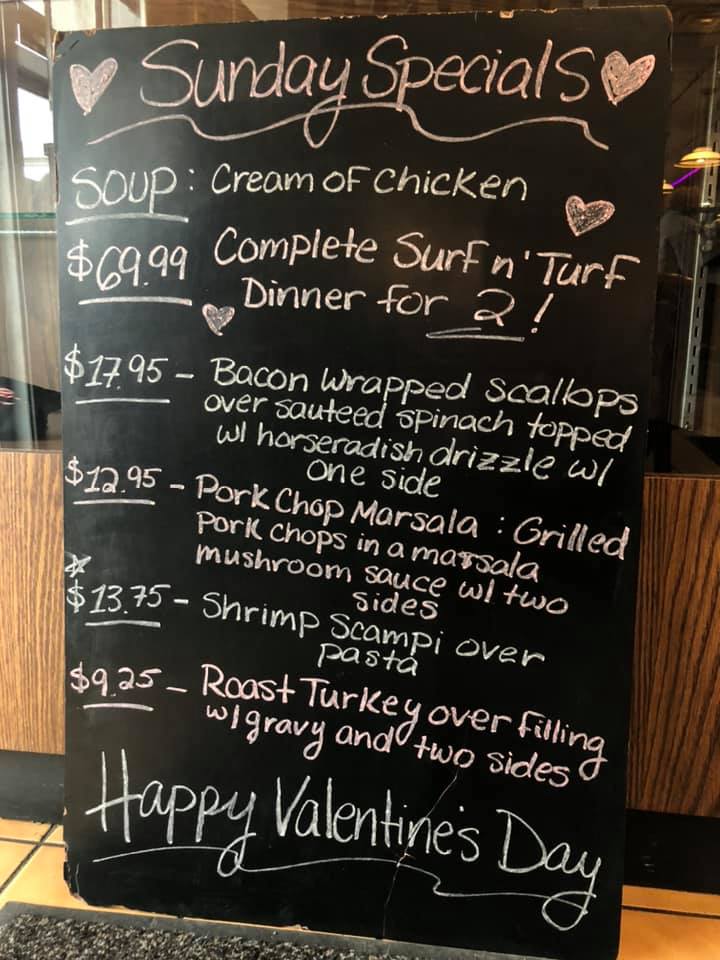 Sunday Specials
SOUP: Cream of Chicken
$69.99 Complete Surf n' Turf
Dinner for 2!
$17.95 - Bacon Wrapped Scallops
over sauteed spinach topped
w/ horseradish drizzle w/
one side
$12.95 - Pork Chop Marsala: Grilled
pork chops in a marsala
mushroom sauce w/ two
sides
$13.75 - Shrimp Scampi over
pasta
$9.25 - Roast Turkey over filling
w/gravy and two sides
Happy Valentine's Day